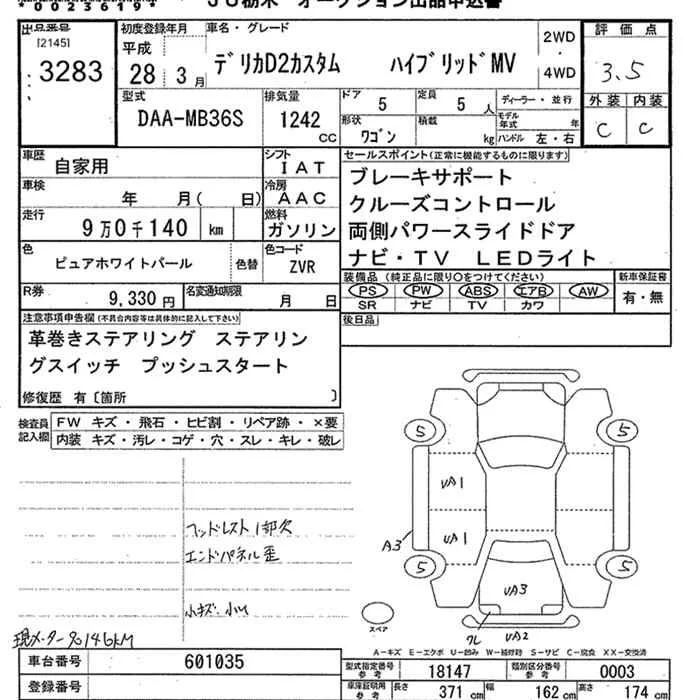 *00236 19*
JU栃木 オークション出品申込書
出品番号
[2145]
3283
初度登録年月
平成
28年 3月
車名・グレード
デリカD2カスタム ハイブリッドMV
2WD
・
4WD
評価点
3.5
外装 内装
C C
型式
DAA-MB36S
排気量
1242
CC
ドア
5
定員
5人
形状
ワゴン
積載
kg
ディーラー・並行
モデル年式 年
ハンドル 左・右
車歴
自家用
シフト
IAT
車検
年 月( 日)
冷房
AAC
走行
9万0千140 km
燃料
ガソリン
色
ピュアホワイトパール
色替
色コード
ZVR
R券
9,330円
名変通知期限
月 日
セールスポイント(正常に機能するものに限ります)
ブレーキサポート
クルーズコントロール
両側パワースライドドア
ナビ・TV LEDライト
装備品 (純正品に限り○をつけてください)
PS PW ABS エアB AW
SR ナビ TV カワ
新車保証書
有・無
後日品
注意事項申告欄(不具合内容等は具体的に記入して下さい)
革巻きステアリング ステアリン
グスイッチ プッシュスタート
修復歴 有〔箇所 〕
検査員
記入欄
FW キズ・飛石・ヒビ割・リペア跡・×要
内装 キズ・汚レ・コゲ・穴・スレ・キレ・破レ
ヘッドレスト1部欠
エンドパネル歪
小キズ・小U
現メーター90146KM
5 5
UA1
UA1
A3
5 5
UA3
UA2
スペア
A-キズ E-エクボ U-凹み W-補修跡 S-サビ C-腐食 XX-交換済
車台番号
601035
登録番号
型式指定番号
参考
18147
類別区分番号
参考
0003
車庫証明用
参考
長さ
371 cm
幅
162 cm
高さ
174 cm